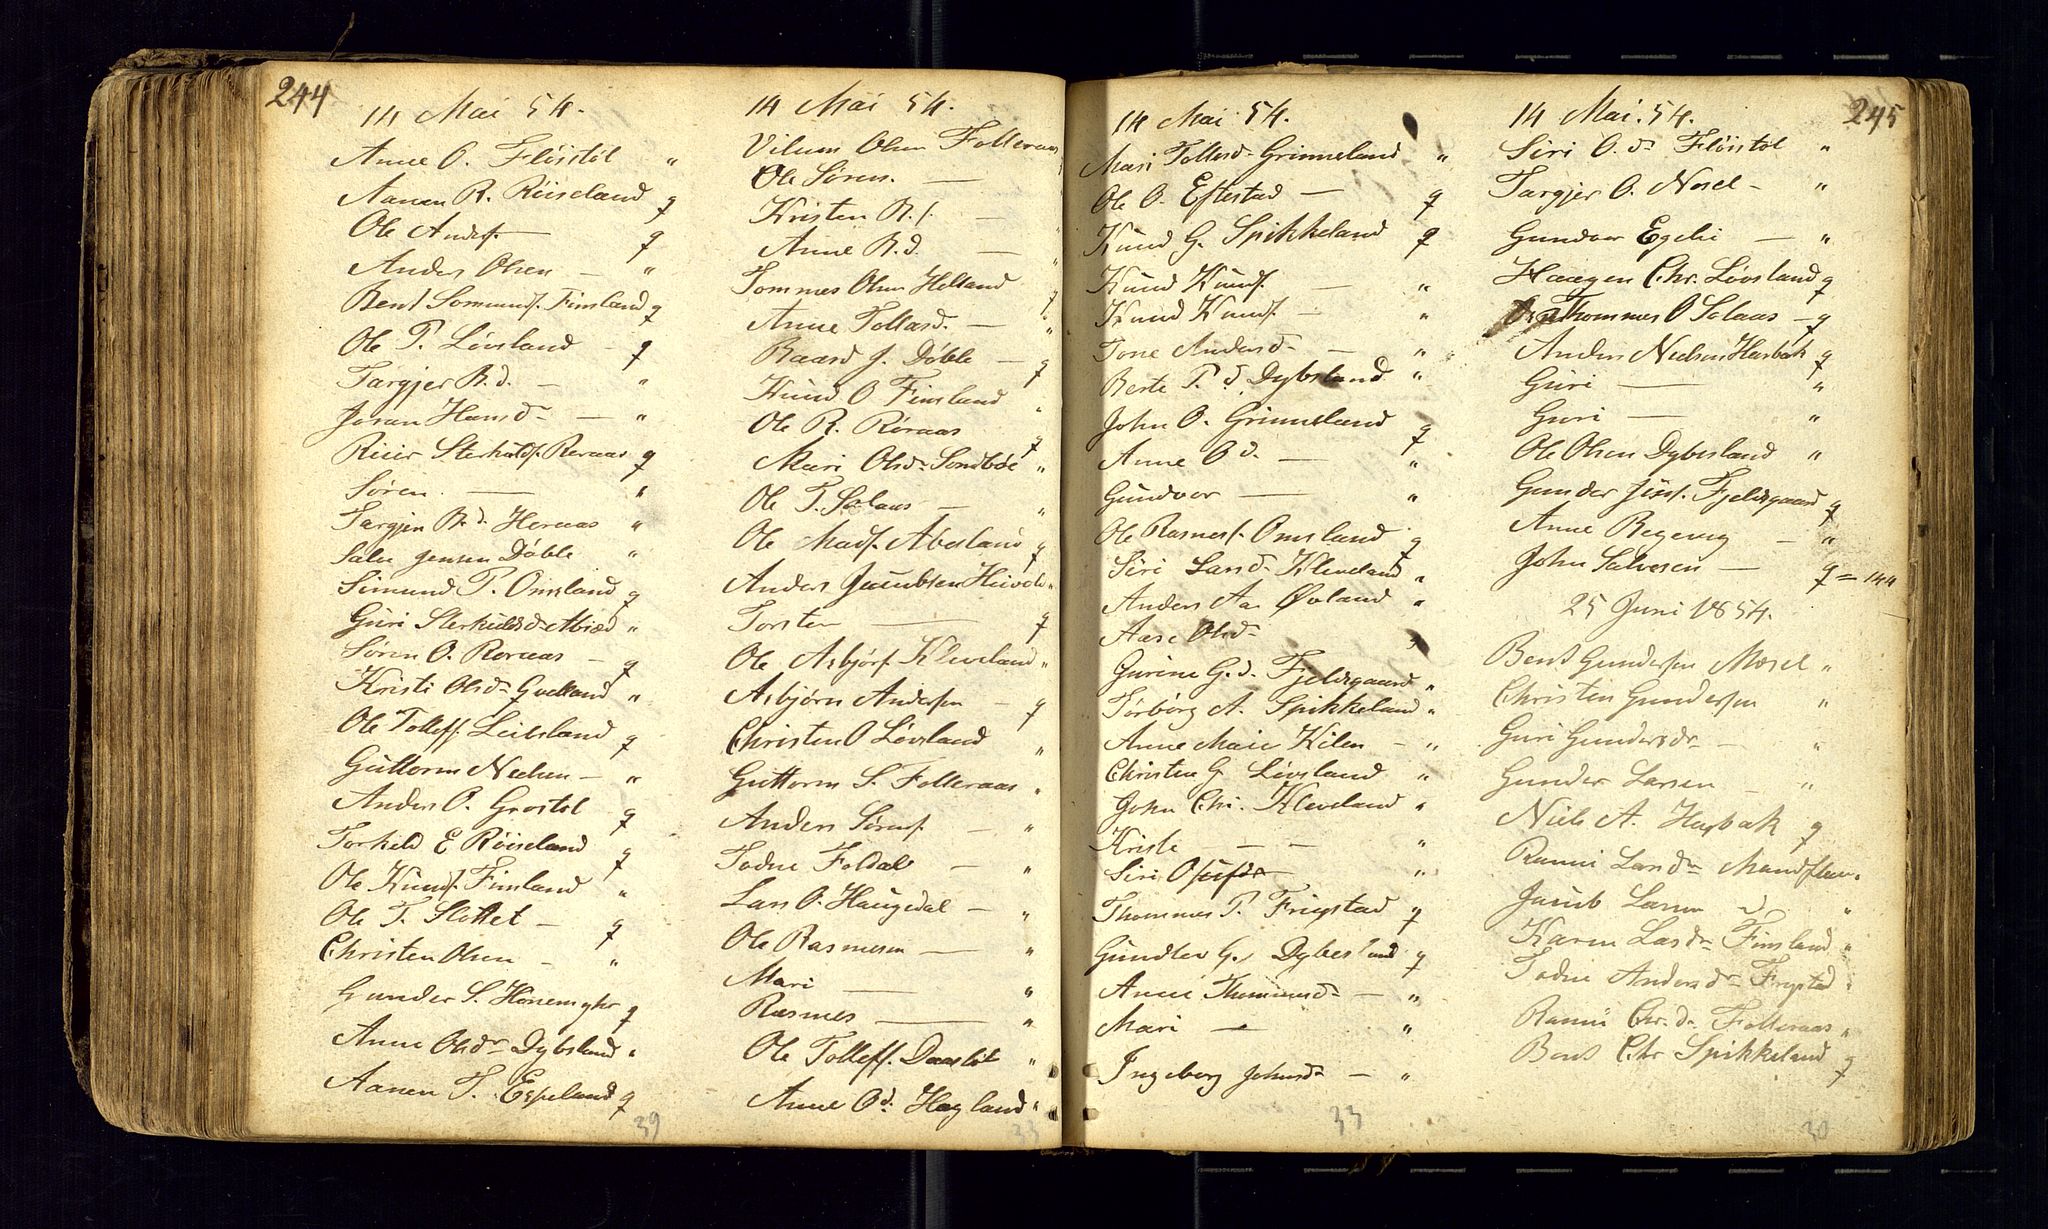 244
14 Mai 54.
Anne O. Fløistøl "
Aanen R. Røiseland q
Ole Anders. — q
Anders Olsen — "
Bent Somunds. Finsland q
Ole P. Løvsland — q
Targjer B.d. — "
Josan Hansd — "
Reier Sterkulds. Reraas q
Søren. — "
Targjer B.d. Heraas "
Salve Jensen Døble "
Simund P. Omsland q
Guri Sterkulds.d. "
Søren O. Reraas — q
Kristi Olsd. "
Ole Tollefs. Leibsland q
Guttorm Nielsen — "
Anders O. Grostøl q
Torkild E Røiseland q
Ole Knuds. Finsland "
Ole T. Slottet — q
Christen Olsen — "
Gunder S. Honemyhr q
Anne Olsdr Dybsland "
Aanen T. Espeland q
39
14 Mai 54.
Vilum Olsen Folleraas
Ole Sørens. —
Kristen R.s. —
Anne R.d. —
Tommes Olsen Helland q
Anne Tollasd. — "
Baard J. Døble — q
Knud O Finsland "
Ole R. Røraas q
Mari Olsd. Sondbøe "
Ole T. Solaas — "
Ole Mads. Abesland q
Anders Jacobsen "
Torsten — q
Ole Asbjørs. Kleveland "
Asbjørn Andersen — q
Christen O Løvsland "
Guttorm S. Folleraas "
Anders Sørens. — "
Todne Foldal — "
Lars O. Haugedal — "
Ole Rasmesen — "
Mari — "
Rasmes — "
Ole Tollefs. Daastøl "
Anne Od. Hagland "
33
14 Mai 54.
Mari Tollesd. Grimeland "
Ole O. Eftestad — q
Knud G. Spikkeland q
Knud Knuds. — "
Knud Knuds. — "
Tone Andersd — "
Berte P.d. Dybsland "
John O. Grimeland q
Anne Od. — "
Gundvor — "
Ole Rasmess. Omsland q
Siri Larsd. Kleveland "
Anders Aa. Øvland "
Aase Olsd. "
Gurine G.d. Fjeldsgaard "
Tørborg A. Spikkeland "
Anne Marie Kilen — "
Christen G Løvsland "
John Chr. Kleveland "
Kriste — — "
Siri — "
Thommes P. Frigstad q
Gundlev G. Dybesland q
Anne Thommesd. — "
Mari — "
Ingeborg Johnsd — "
33
245
14 Mai. 54.
Siri O.d. Fløistøl "
Targjer O. Nosel — "
Gundvor Egelie — "
Haagen Chr. Løvsland q
Thommes O Solaas — q
Anders Nielsen Hasbak q
Guri — "
Guri — "
Ole Olsen Dybesland "
Gunder Jens. Fjeldsgaard q
Anne Regevig — "
John Salvesen — q = 144
25 Juni 1854.
Bent Gundersen Mosel "
Christen Gundersen "
Guri Gundersdr — "
Gunder Larsen — "
Niels A. Hasbak q
Ranni Larsdr "
Jacob Larsen "
Karen Larsdr Finsland "
Todne Andersdr Frigstad "
Ranni Chr.dr Folleraas "
Bent Chr Spikkeland q
30